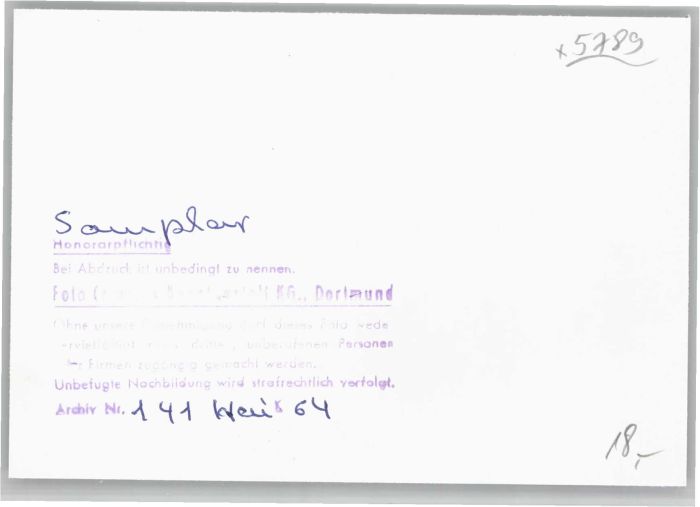 x5789
Honorarpflichtig
Bei Abdruck ist unbedingt zu nennen.
Foto KG., Dortmund
Ohne unsere Genehmigung darf dieses Foto wede
unberufenen Personen
Firmen zugängig gemacht werden.
Unbefugte Nachbildung wird strafrechtlich verfolgt.
Archiv Nr. 141 64
18,-